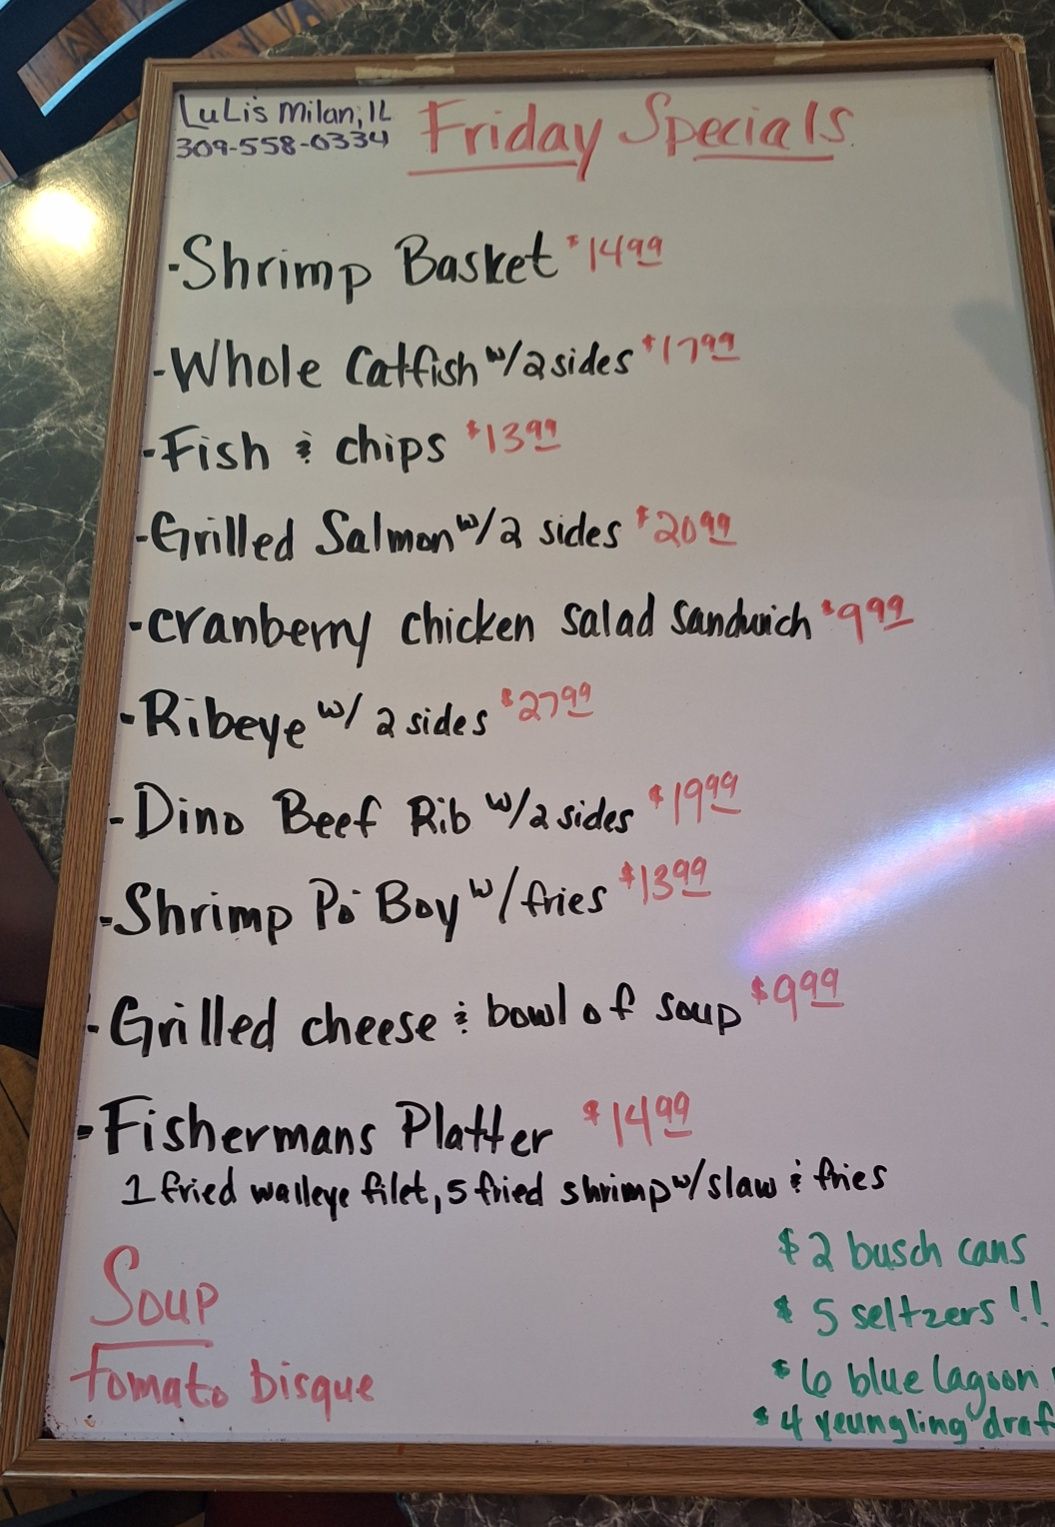 LuLi's Milan, IL
309-558-0334
Friday Specials
-Shrimp Basket $14.99
-Whole Catfish w/2 sides $17.99
-Fish & chips $13.99
-Grilled Salmon w/2 sides $20.99
-cranberry chicken salad sandwich $9.99
-Ribeye w/ 2 sides $27.99
-Dino Beef Rib w/2 sides $19.99
-Shrimp Po' Boy w/fries $13.99
-Grilled cheese & bowl of soup $9.99
-Fishermans Platter $14.99
1 fried walleye filet, 5 fried shrimp w/slaw & fries
Soup
Tomato bisque
$2 busch cans
$5 seltzers!!
$6 blue lagoon
$4 yeungling draf